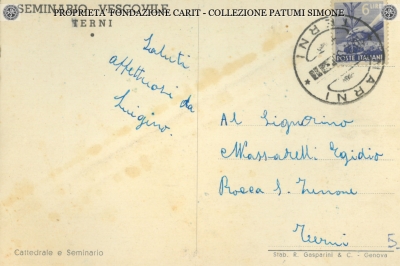 PROPRIETÀ FONDAZIONE CARIT - COLLEZIONE PATUMI SIMONE
SEMINARIO VESCOVILE
TERNI
Saluti
affettuosi da
Luigino.
6 LIRE
POSTE ITALIANE
NARNI
Al Signorino
Massarelli Egidio
Rocca S. Zenone
Terni
5
Cattedrale e Seminario
Stab. R. Gasparini & C. - Genova